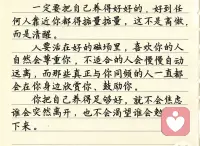 一定要把自己养得好好的，好到任
何人靠近你都得掂量掂量，这不是高傲，
而是清醒。
人要活在好的磁场里，喜欢你的人
自然会尊重你，不适合的人会慢慢自动
远离，而那些真正与你同频的人一直都
会在你身边欣赏你、鼓励你。
你把自己养得足够好，就不会焦虑
谁会突然离开，也不会渴望谁会
下来。